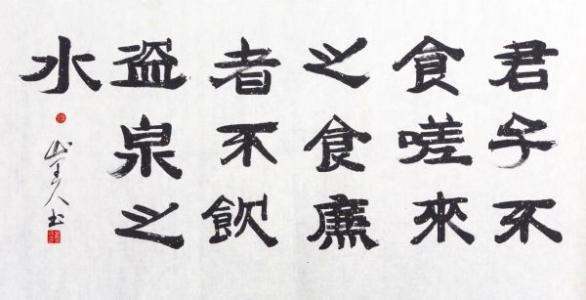 君子不
食嗟來
之食廉
者不飲
盗泉之
水
山人书